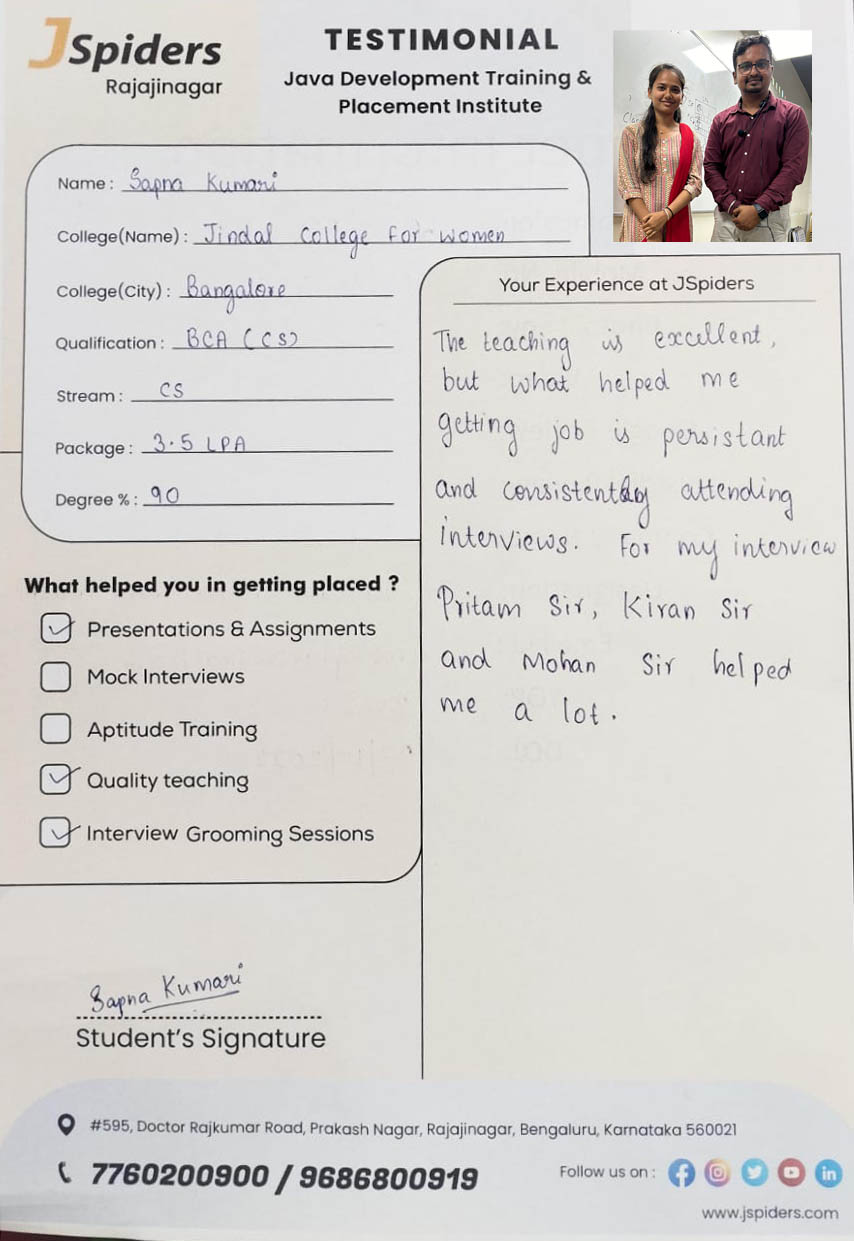 JSpiders
Rajajinagar
TESTIMONIAL
Java Development Training &
Placement Institute
Name : Sapna Kumari
College(Name) : Jindal College for women
College(City) : Bangalore
Qualification : BCA (CS)
Stream : CS
Package : 3.5 LPA
Degree % : 90
What helped you in getting placed ?
Presentations & Assignments
Mock Interviews
Aptitude Training
Quality teaching
Interview Grooming Sessions
Your Experience at JSpiders
The teaching is excellent,
but what helped me
getting job is persistant
and consistently attending
interviews. For my interview
Pritam Sir, Kiran Sir
and Mohan Sir helped
me a lot.
Sapna Kumari
Student's Signature
#595, Doctor Rajkumar Road, Prakash Nagar, Rajajinagar, Bengaluru, Karnataka 560021
7760200900 / 9686800919
Follow us on :
www.jspiders.com